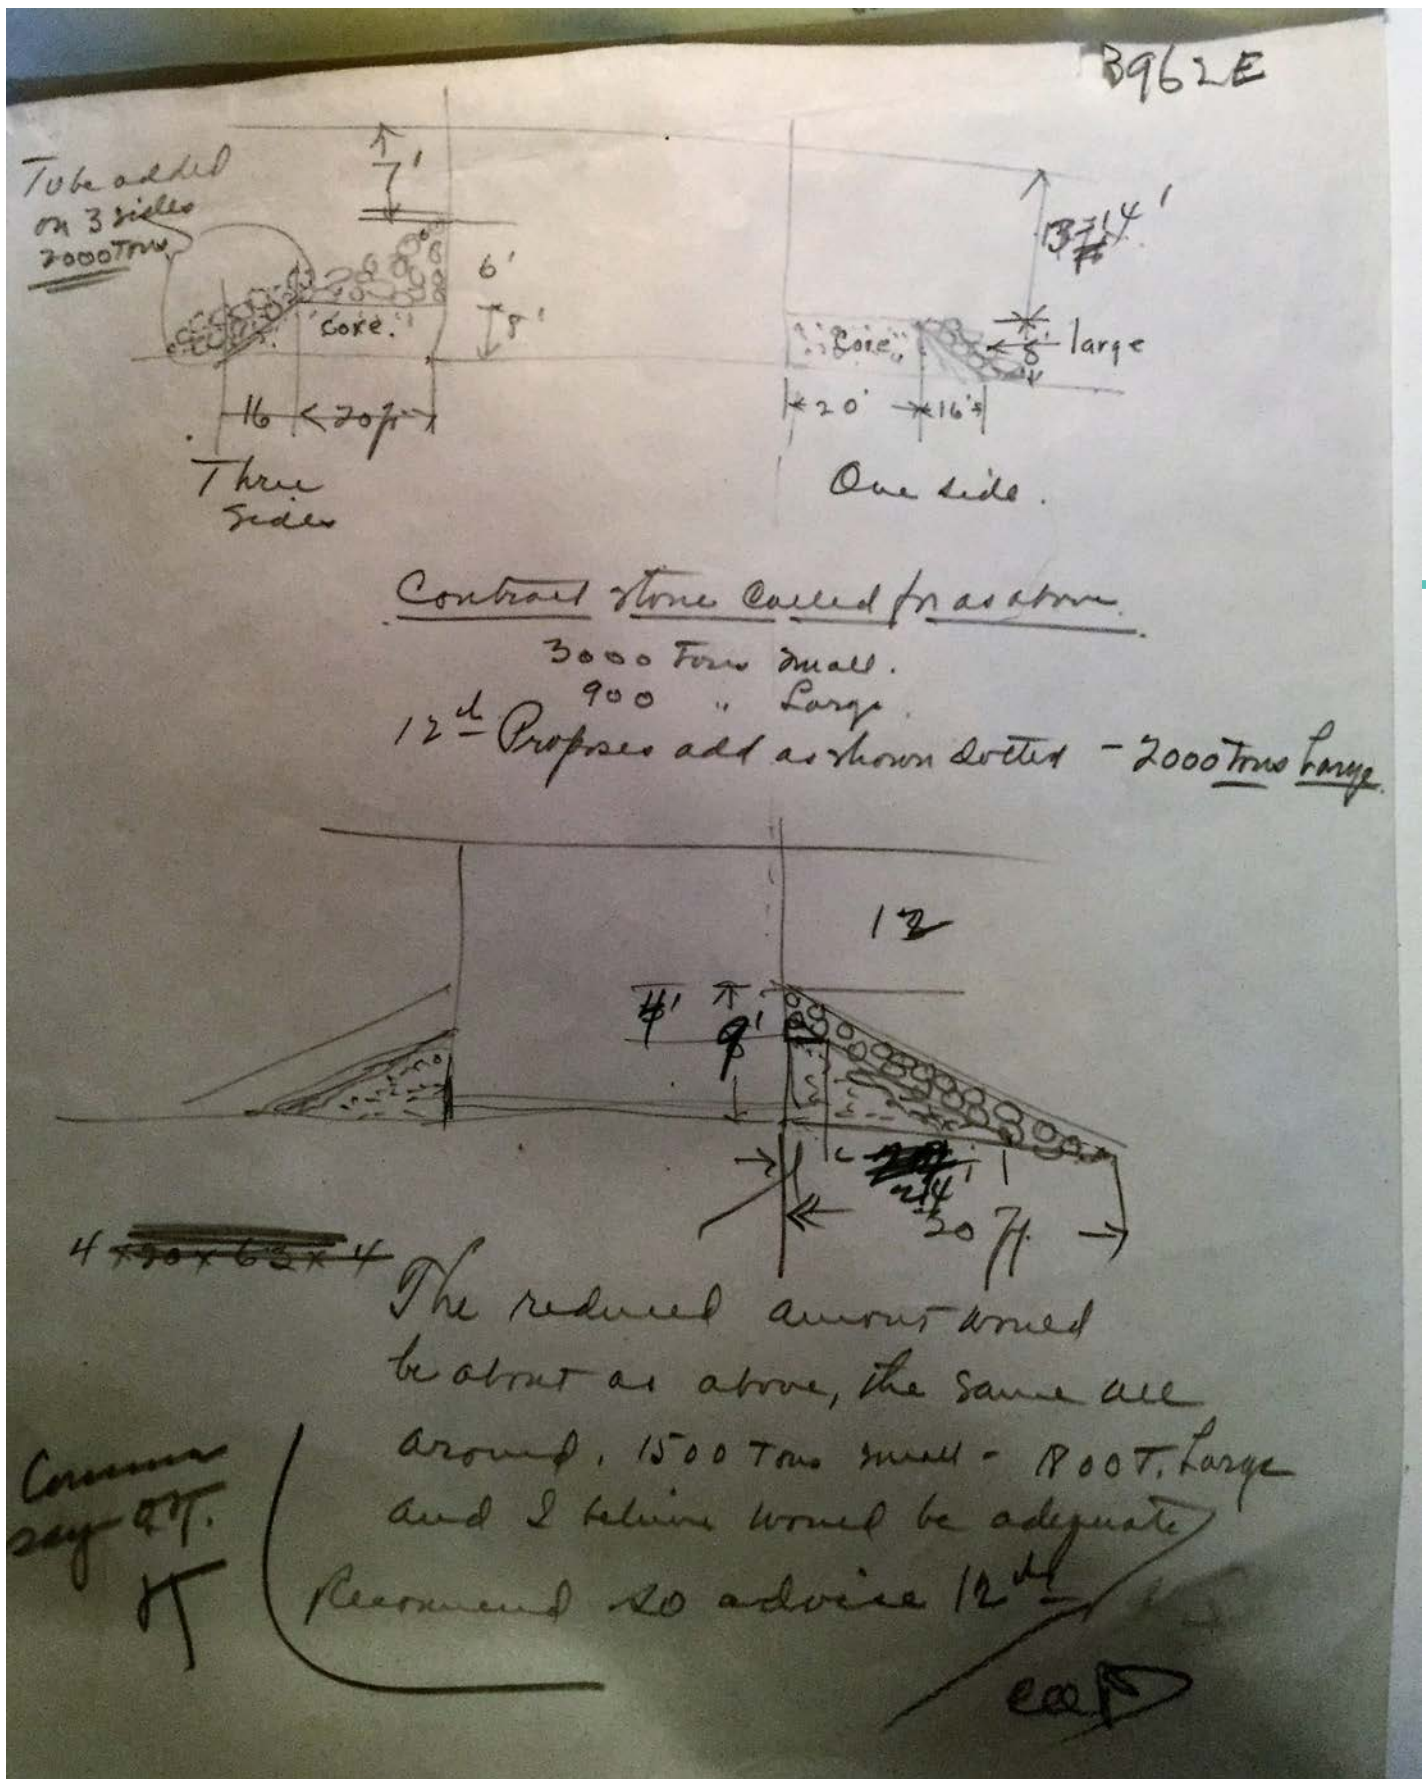 3962E
To be added
on 3 sides
2000 Tons
7'
6'
8'
"Core."
16 20ft
Three
Sides
14'
"Core"
8' large
20' 16'
One side.
Contract stone called for as above.
3000 Tons small.
900 " Large.
12th Proposes add as shown dotted - 2000 Tons Large.
12
4' 9'
24
30 ft.
4 x 20 x 63 x 4
The reduced amount would
be about as above, the same all
around. 1500 Tons small - 1800 T. Large
and I believe would be adequate
Recommend so advise 12th
Comm
say O.K.